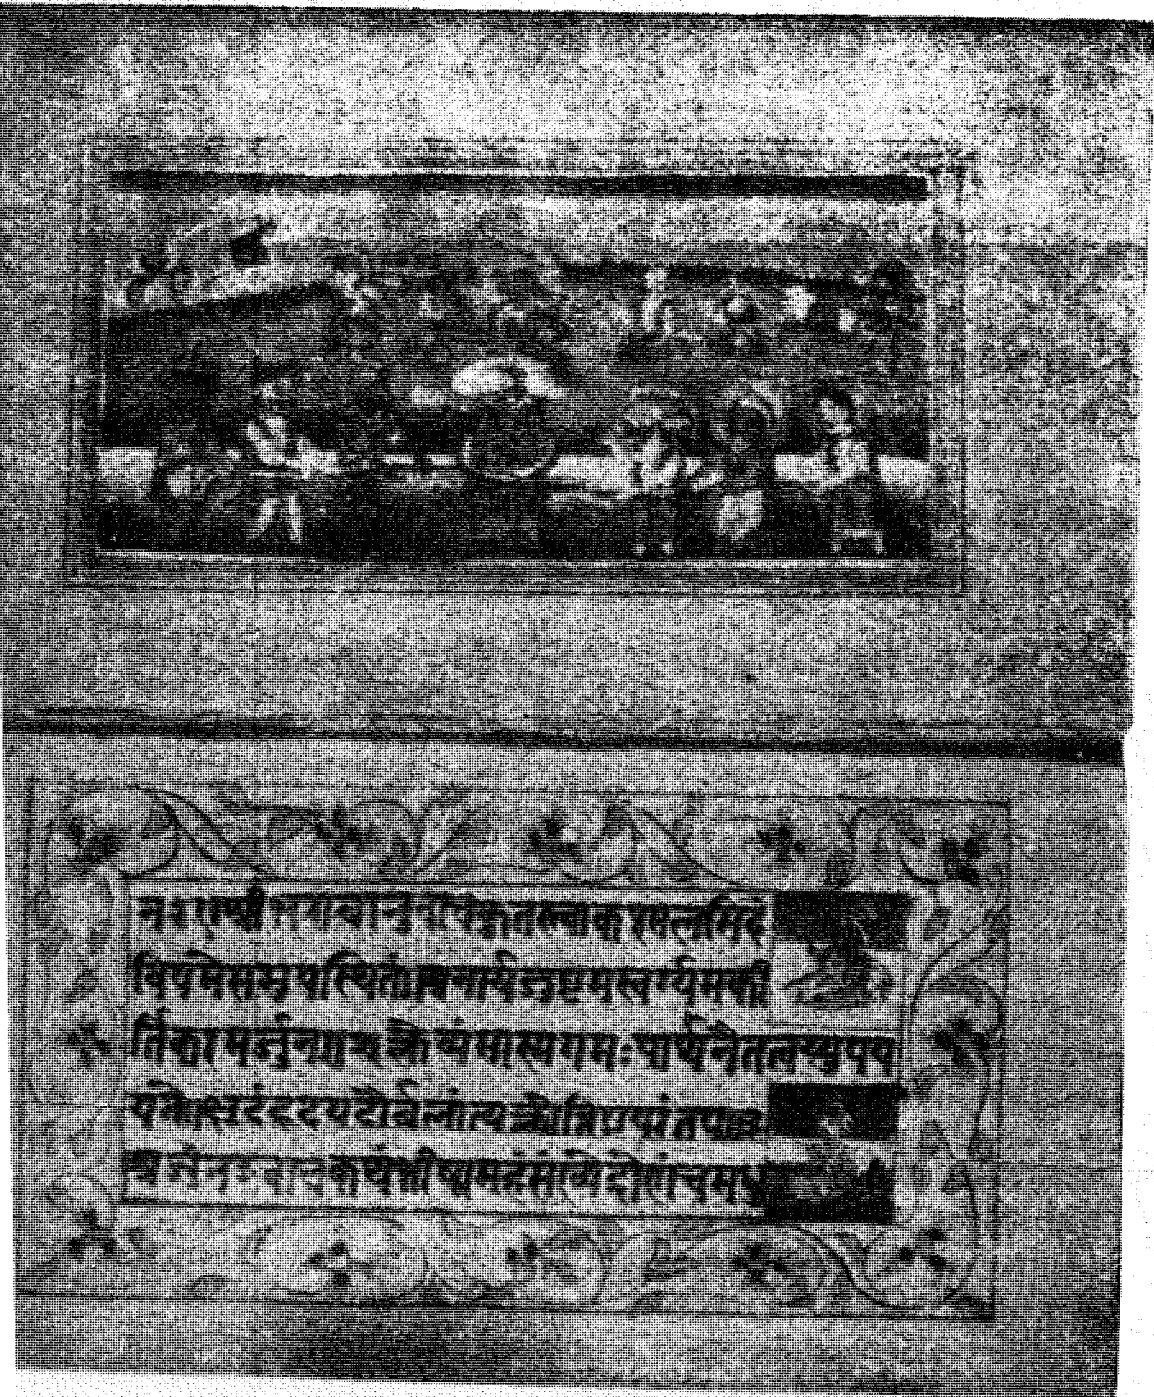 श्रीभगवानुवाचकुतस्त्वाकश्मलमिदं
विषमेसमुपस्थितं।अनार्यजुष्टमस्वर्ग्यमकी
र्तिकरमर्जुन क्लैब्यंमास्मगमःपार्थनैतत्वय्युपप
द्यते।क्षुद्रंहृदयदौर्बल्यंत्यक्त्वोत्तिष्ठपरंतप३अ
र्जुनउवाचकथंभीष्ममहंसंख्येद्रोणंचमधु